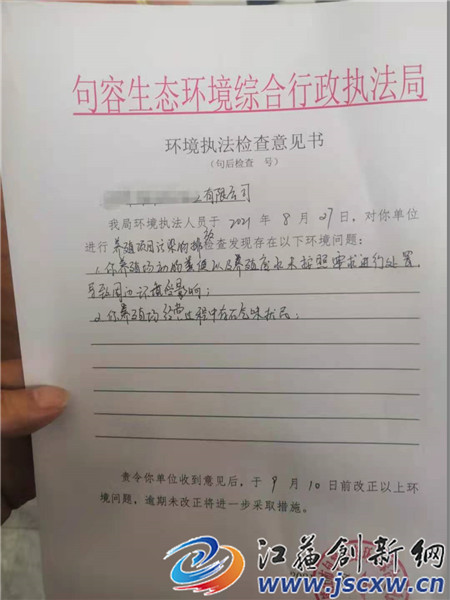 句容生态环境综合行政执法局
环境执法检查意见书
（句后检查 号）
有限公司
我局环境执法人员于 2021 年 8 月 27 日，对你单位
进行 养殖项目污染防治 检查发现存在以下环境问题：
1.你养殖场 粪便以及养殖废水未按照要求进行处置，
导致周边环境受影响；
2.你养殖场经营过程中存在气味扰民。
责令你单位收到意见后，于 9 月 10 日前改正以上环
境问题，逾期未改正将进一步采取措施。
江苏创新网
www.jscxw.cn